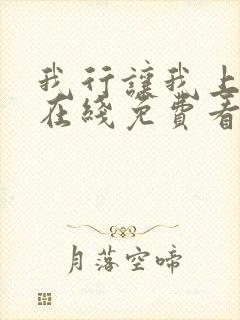 我行讓我上
在綫免費看
月落空啼